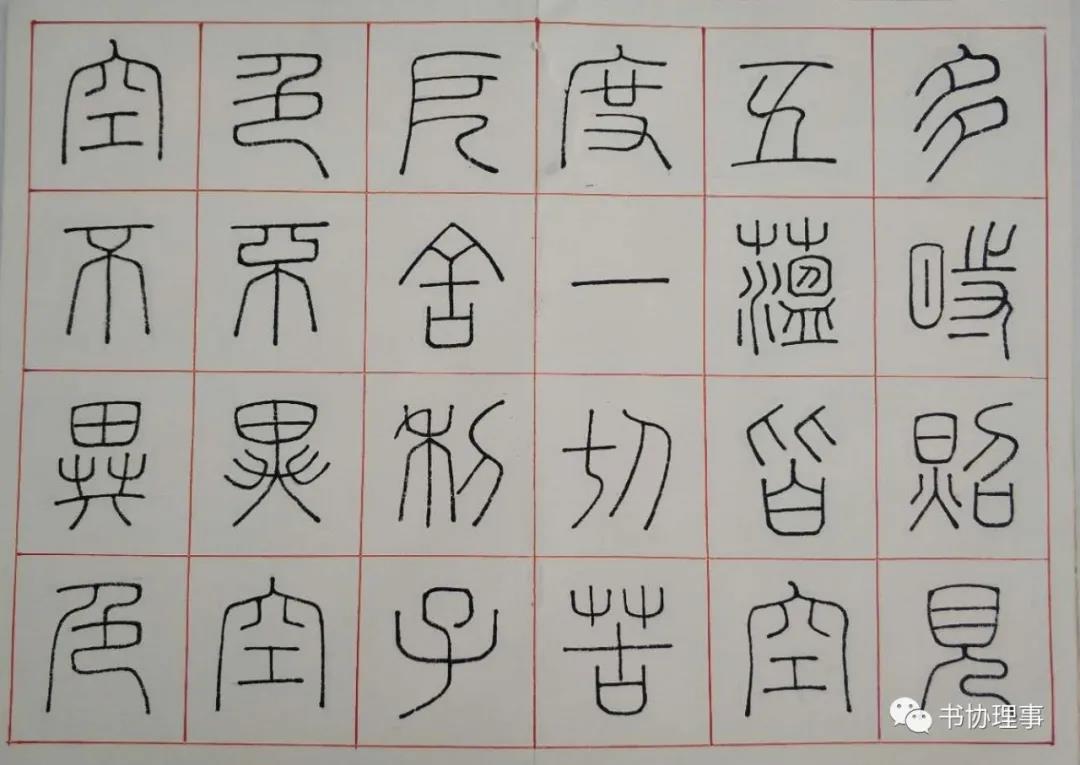 多時照見
五蘊皆空
度一切苦
厄舍利子
色不異空
空不異色
书协理事